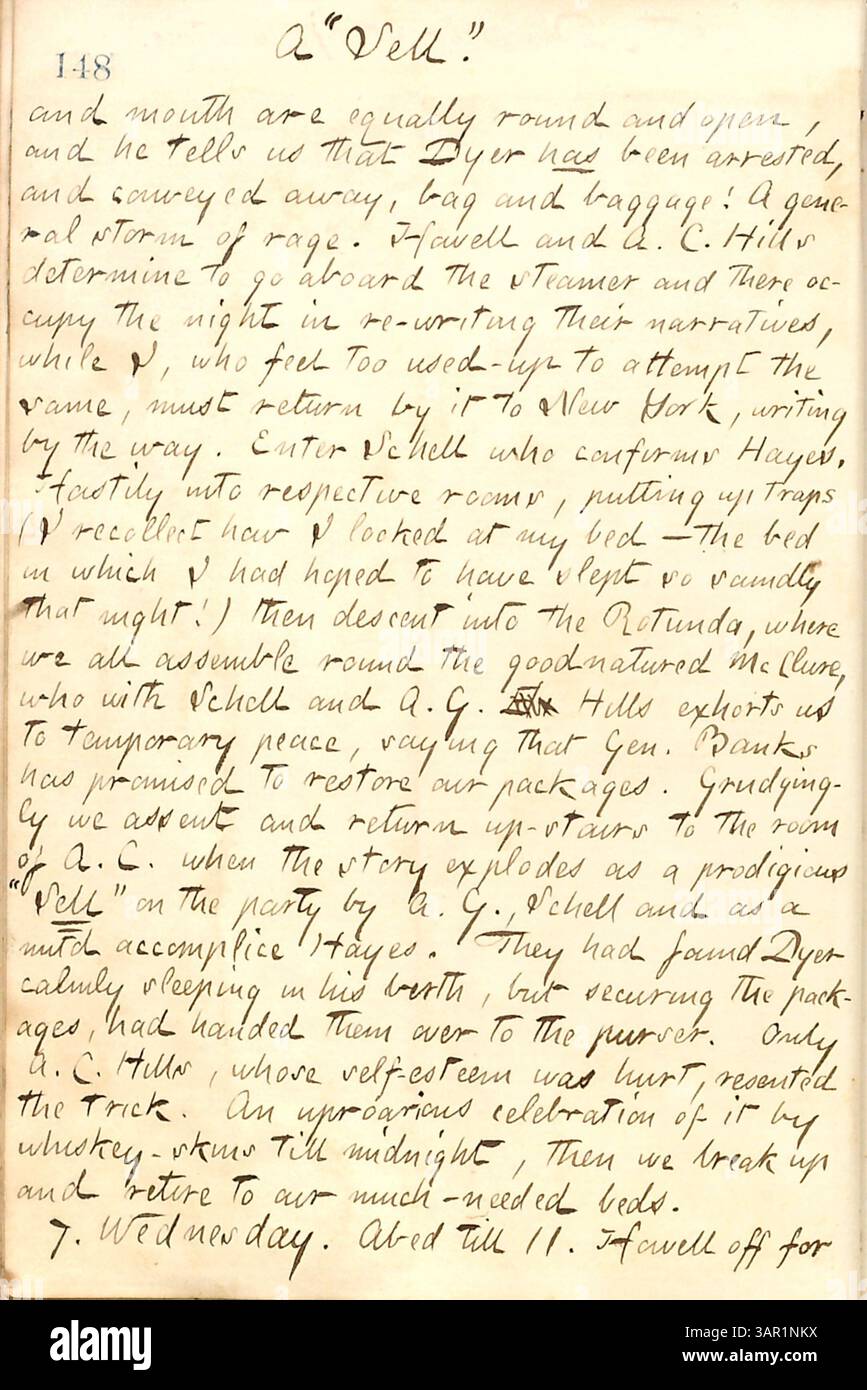 148
A "Sell."
and mouth are equally round and open,
and he tells us that Dyer has been arrested,
and conveyed away, bag and baggage! A gene-
ral storm of rage. Howell and A. C. Hills
determine to go aboard the steamer and there oc-
cupy the night in re-writing their narratives,
while I, who feel too used-up to attempt the
same, must return by it to New York, writing
by the way. Enter Schell who confirms Hayes.
Hastily into respective rooms, putting up traps
(I recollect how I looked at my bed — the bed
in which I had hoped to have slept so soundly
that night!) then descent into the Rotunda, where
we all assemble round the goodnatured McClure,
who with Schell and A. G. Hills exhorts us
to temporary peace, saying that Gen. Banks
has promised to restore our packages. Grudging-
ly we assent and return up-stairs to the room
of A. C. when the story explodes as a prodigious
"Sell" on the party by A. G., Schell and as a
mild accomplice Hayes. They had found Dyer
calmly sleeping in his berth, but securing the pack-
ages, had handed them over to the purser. Only
A. C. Hills, whose self-esteem was hurt, resented
the trick. An uproarious celebration of it by
whiskey-skins till midnight, then we break up
and retire to our much-needed beds.
7. Wednesday. Abed till 11. Howell off for
alamy
Image ID: 3AR1NKX
www.alamy.com